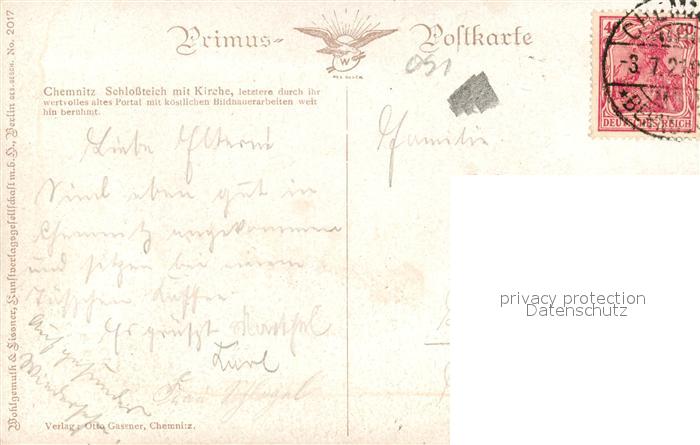 Primus- Postkarte
W
Chemnitz Schloßteich mit Kirche, letztere durch ihr
wertvolles altes Portal mit köstlichen Bildhauerarbeiten weit
hin berühmt.
091
40
-3.7.2
DEUTSCHES REICH
Liebe Eltern!
Sind eben gut in
Chemnitz angekommen
und sitzen bei einem
Täßchen Kaffee
Es grüßt
Karl
Frau Schlegel
Auf gesundes
Wiedersehn!
Familie
privacy protection
Datenschutz
Verlag: Otto Gassner, Chemnitz.
Wohlgemuth & Lissner, Kunstverlagsgesellschaft m.b.H., Berlin No. 2017